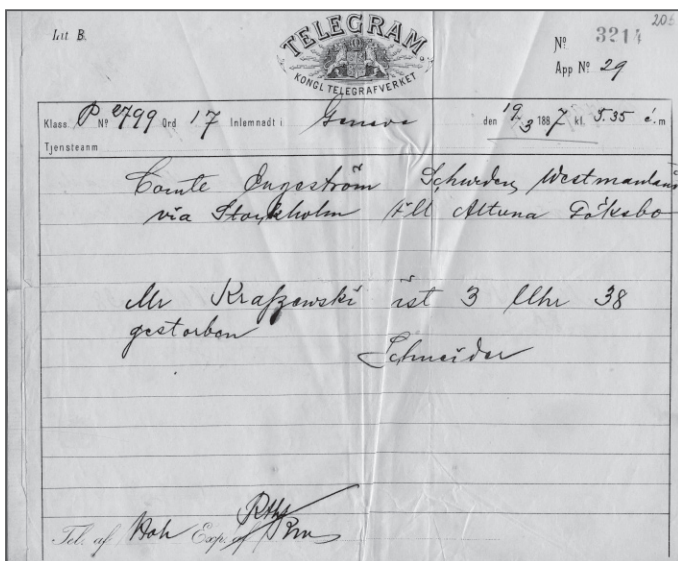 205
Litt B.
TELEGRAM
KONGL TELEGRAFVERKET
No 3214
App No 29
Klass P No 2799 Ord 17 Inlemnadt i Geneve den 19/3 1887 kl. 5.35 e.m
Tjensteanm
Comte Engeström Schweden Westmanland
via Stockholm till Altuna Fröksbo
Mr Krafzewski ist 3 Uhr 38
gestorben
Schneider
Tel. af Exp. af